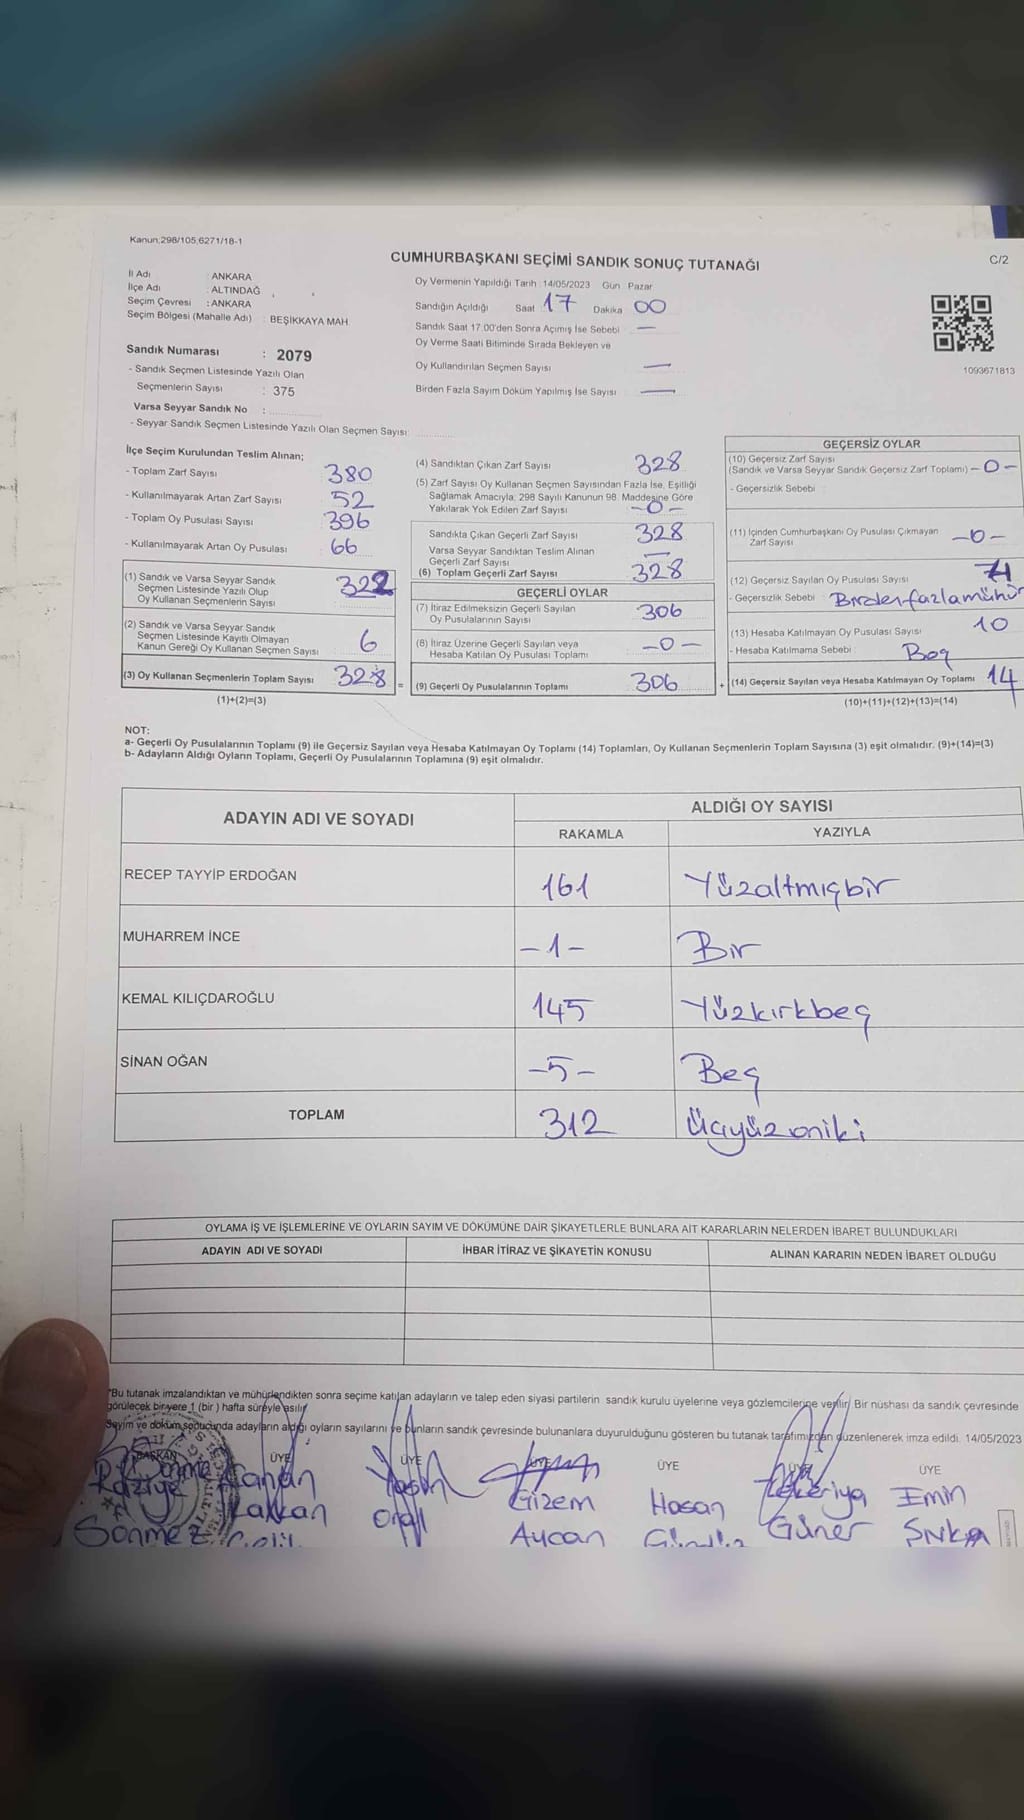 Kanun;298/105,6271/18-1
CUMHURBAŞKANI SEÇİMİ SANDIK SONUÇ TUTANAĞI
C/2
İl Adı : ANKARA
İlçe Adı : ALTINDAĞ
Seçim Çevresi : ANKARA
Seçim Bölgesi (Mahalle Adı) : BEŞİKKAYA MAH
Sandık Numarası : 2079
- Sandık Seçmen Listesinde Yazılı Olan
Seçmenlerin Sayısı : 375
Varsa Seyyar Sandık No :
- Seyyar Sandık Seçmen Listesinde Yazılı Olan Seçmen Sayısı:
Oy Vermenin Yapıldığı Tarih : 14/05/2023 Gün : Pazar
Sandığın Açıldığı Saat 17 Dakika 00
Sandık Saat 17.00'den Sonra Açımış İse Sebebi —
Oy Verme Saati Bitiminde Sırada Bekleyen ve
Oy Kullandırılan Seçmen Sayısı —
Birden Fazla Sayım Döküm Yapılmış İse Sayısı —
1093671813
İlçe Seçim Kurulundan Teslim Alınan;
- Toplam Zarf Sayısı 380
- Kullanılmayarak Artan Zarf Sayısı 52
- Toplam Oy Pusulası Sayısı 396
- Kullanılmayarak Artan Oy Pusulası 66
(1) Sandık ve Varsa Seyyar Sandık
Seçmen Listesinde Yazılı Olup
Oy Kullanan Seçmenlerin Sayısı 322
(2) Sandık ve Varsa Seyyar Sandık
Seçmen Listesinde Kayıtlı Olmayan
Kanun Gereği Oy Kullanan Seçmen Sayısı 6
(3) Oy Kullanan Seçmenlerin Toplam Sayısı 328 =
(1)+(2)=(3)
(4) Sandıktan Çıkan Zarf Sayısı 328
(5) Zarf Sayısı Oy Kullanan Seçmen Sayısından Fazla İse, Eşitliği
Sağlamak Amacıyla; 298 Sayılı Kanunun 98. Maddesine Göre
Yakılarak Yok Edilen Zarf Sayısı -0-
Sandıkta Çıkan Geçerli Zarf Sayısı 328
Varsa Seyyar Sandıktan Teslim Alınan
Geçerli Zarf Sayısı —
(6) Toplam Geçerli Zarf Sayısı 328
GEÇERLİ OYLAR
(7) İtiraz Edilmeksizin Geçerli Sayılan
Oy Pusulalarının Sayısı 306
(8) İtiraz Üzerine Geçerli Sayılan veya
Hesaba Katılan Oy Pusulası Toplamı -0-
(9) Geçerli Oy Pusulalarının Toplamı 306 +
GEÇERSİZ OYLAR
(10) Geçersiz Zarf Sayısı
(Sandık ve Varsa Seyyar Sandık Geçersiz Zarf Toplamı) -0-
- Geçersizlik Sebebi :
(11) İçinden Cumhurbaşkanı Oy Pusulası Çıkmayan
Zarf Sayısı -0-
(12) Geçersiz Sayılan Oy Pusulası Sayısı
- Geçersizlik Sebebi : Birdenfazlamühür
(13) Hesaba Katılmayan Oy Pusulası Sayısı 10
- Hesaba Katılmama Sebebi : Boş
(14) Geçersiz Sayılan veya Hesaba Katılmayan Oy Toplamı 14
(10)+(11)+(12)+(13)=(14)
NOT:
a- Geçerli Oy Pusulalarının Toplamı (9) ile Geçersiz Sayılan veya Hesaba Katılmayan Oy Toplamı (14) Toplamları, Oy Kullanan Seçmenlerin Toplam Sayısına (3) eşit olmalıdır. (9)+(14)=(3)
b- Adayların Aldığı Oyların Toplamı, Geçerli Oy Pusulalarının Toplamına (9) eşit olmalıdır.
ADAYIN ADI VE SOYADI
ALDIĞI OY SAYISI
RAKAMLA YAZIYLA
RECEP TAYYİP ERDOĞAN 161 Yüzaltmışbir
MUHARREM İNCE -1- Bir
KEMAL KILIÇDAROĞLU 145 Yüzkırkbeş
SİNAN OĞAN -5- Beş
TOPLAM 312 Üçyüzoniki
OYLAMA İŞ VE İŞLEMLERİNE VE OYLARIN SAYIM VE DÖKÜMÜNE DAİR ŞİKAYETLERLE BUNLARA AİT KARARLARIN NELERDEN İBARET BULUNDUKLARI
ADAYIN ADI VE SOYADI İHBAR İTİRAZ VE ŞİKAYETİN KONUSU ALINAN KARARIN NEDEN İBARET OLDUĞU
*Bu tutanak imzalandıktan ve mühürlendikten sonra seçime katılan adayların ve talep eden siyasi partilerin sandık kurulu üyelerine veya gözlemcilerine verilir. Bir nüshası da sandık çevresinde
görülecek bir yere 1 (bir) hafta süreyle asılır.
Sayım ve döküm sonucunda adayların aldığı oyların sayılarını ve bunların sandık çevresinde bulunanlara duyurulduğunu gösteren bu tutanak tarafımızdan düzenlenerek imza edildi. 14/05/2023
BAŞKAN ÜYE ÜYE ÜYE ÜYE ÜYE ÜYE
Raziye Gizem Hasan Zekeriya Emin
Sönmez Aycan Güner